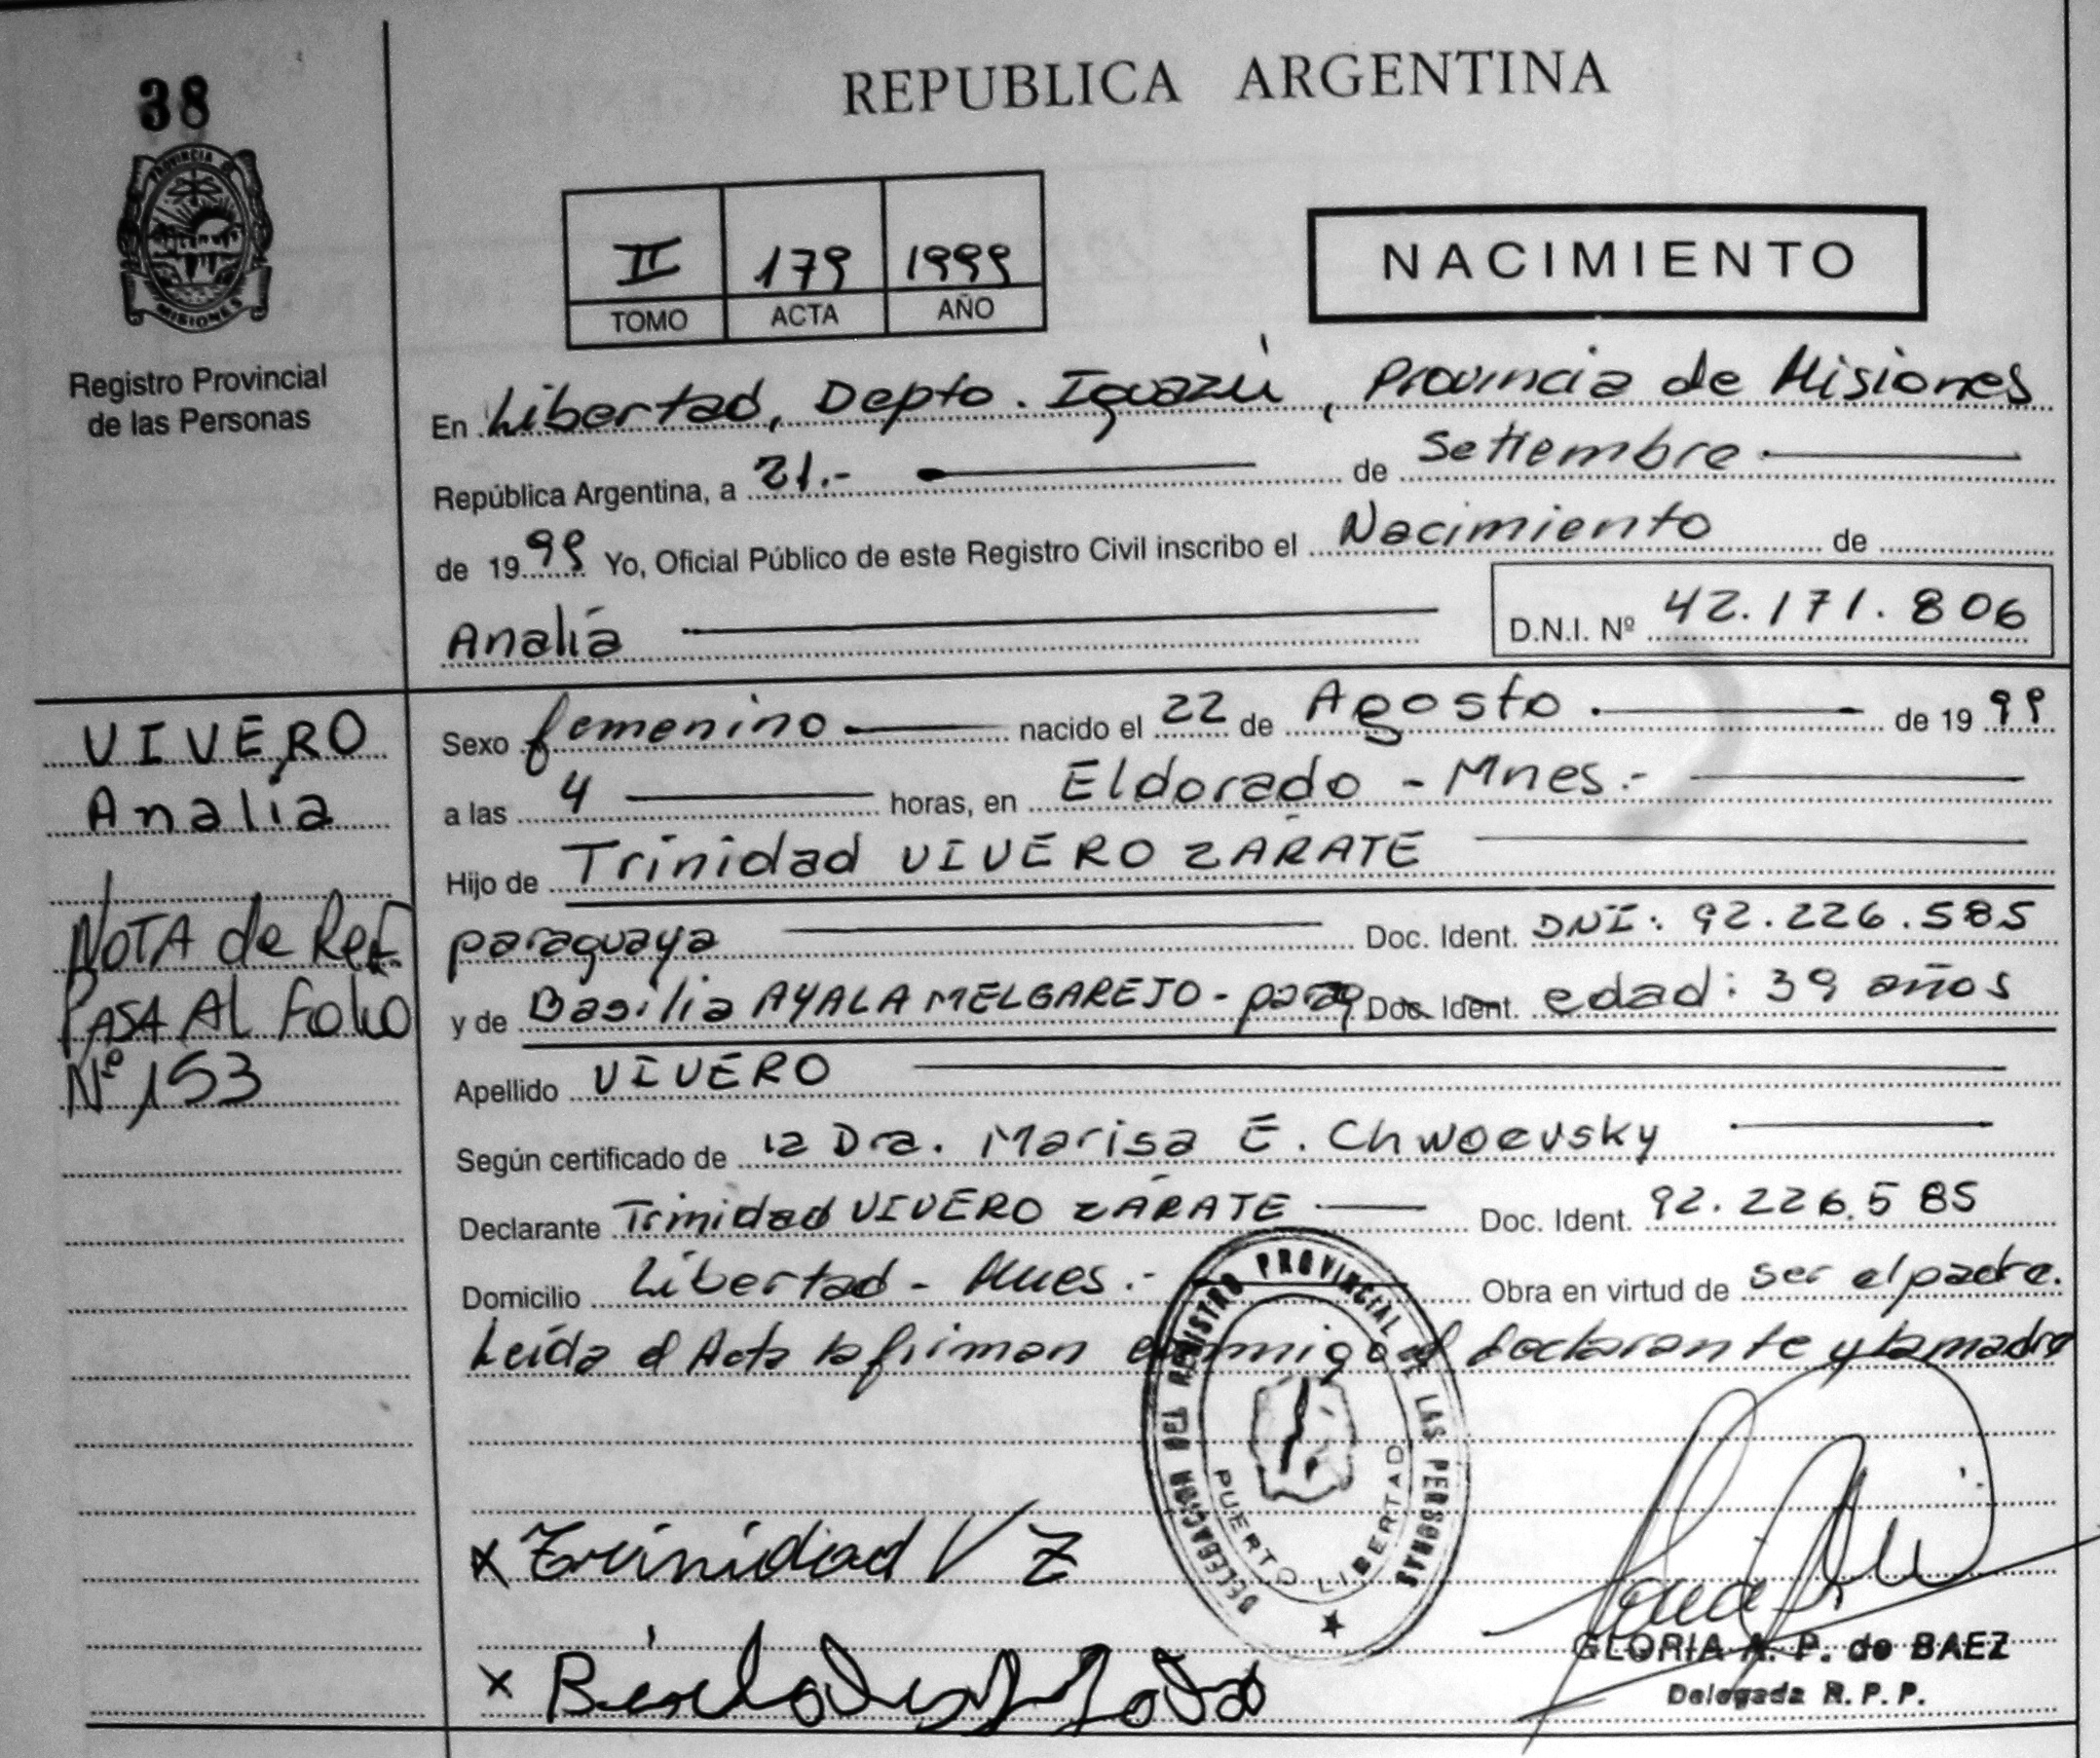 38
PROVINCIA DE
MISIONES
Registro Provincial
de las Personas
REPUBLICA ARGENTINA
II 179 1999
TOMO ACTA AÑO
NACIMIENTO
En Libertad, Depto. Iguazú, Provincia de Misiones
República Argentina, a 21.- de Setiembre
de 1999 Yo, Oficial Público de este Registro Civil inscribo el Nacimiento de
Analía
D.N.I. Nº 42.171.806
VIVERO
Analía
NOTA de Ref.
PASA Al folio
Nº 153
Sexo femenino nacido el 22 de Agosto de 1999
a las 4 horas, en Eldorado - Mnes.-
Hijo de Trinidad VIVERO ZÁRATE
paraguaya Doc. Ident. DNI: 92.226.585
y de Basilia AYALA MELGAREJO - parag Doc. Ident. edad: 39 años
Apellido VIVERO
Según certificado de la Dra. Marisa E. Chwoevsky
Declarante Trinidad VIVERO ZÁRATE Doc. Ident. 92.226.585
Domicilio Libertad - Mnes.- Obra en virtud de ser el padre.
Leída el Acta la firman conmigo el declarante y la madre
DELEGACION DEL REGISTRO PROVINCIAL DE LAS PERSONAS
PUERTO LIBERTAD
x Trinidad V Z
x
GLORIA A. P. de BAEZ
Delegada R. P. P.